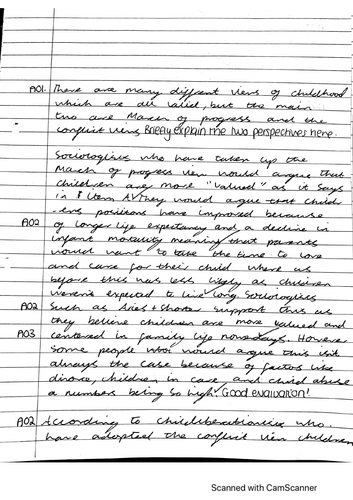 AO1. There are many diffrent views of childhood
which are all valid, but the main
two are March of progress and the
conflict view. Briefly explain the two perspectives here.
Sociologists who have taken up the
March of progress view would argue that
children are more "valued" as it says
in Item A. They would argue that child
-rens positions have improved because
AO2 of longer life expectancy and a decline in
infant mortality meaning that parents
would want to take the time to love
and care for their child where as
before this was less likely as children
weren't expected to live long. Sociologists
AO2 Such as Aries + Shorter support this as
they believe children are more valued and
AO3 centered in family life nowadays. However
Some people would argue this isnt
always the case because of factors like
divorce, children in care and child abuse
numbers being so high. Good evaluation!
AO2 According to childliberationists who
have adopted the conflict view children
Scanned with CamScanner